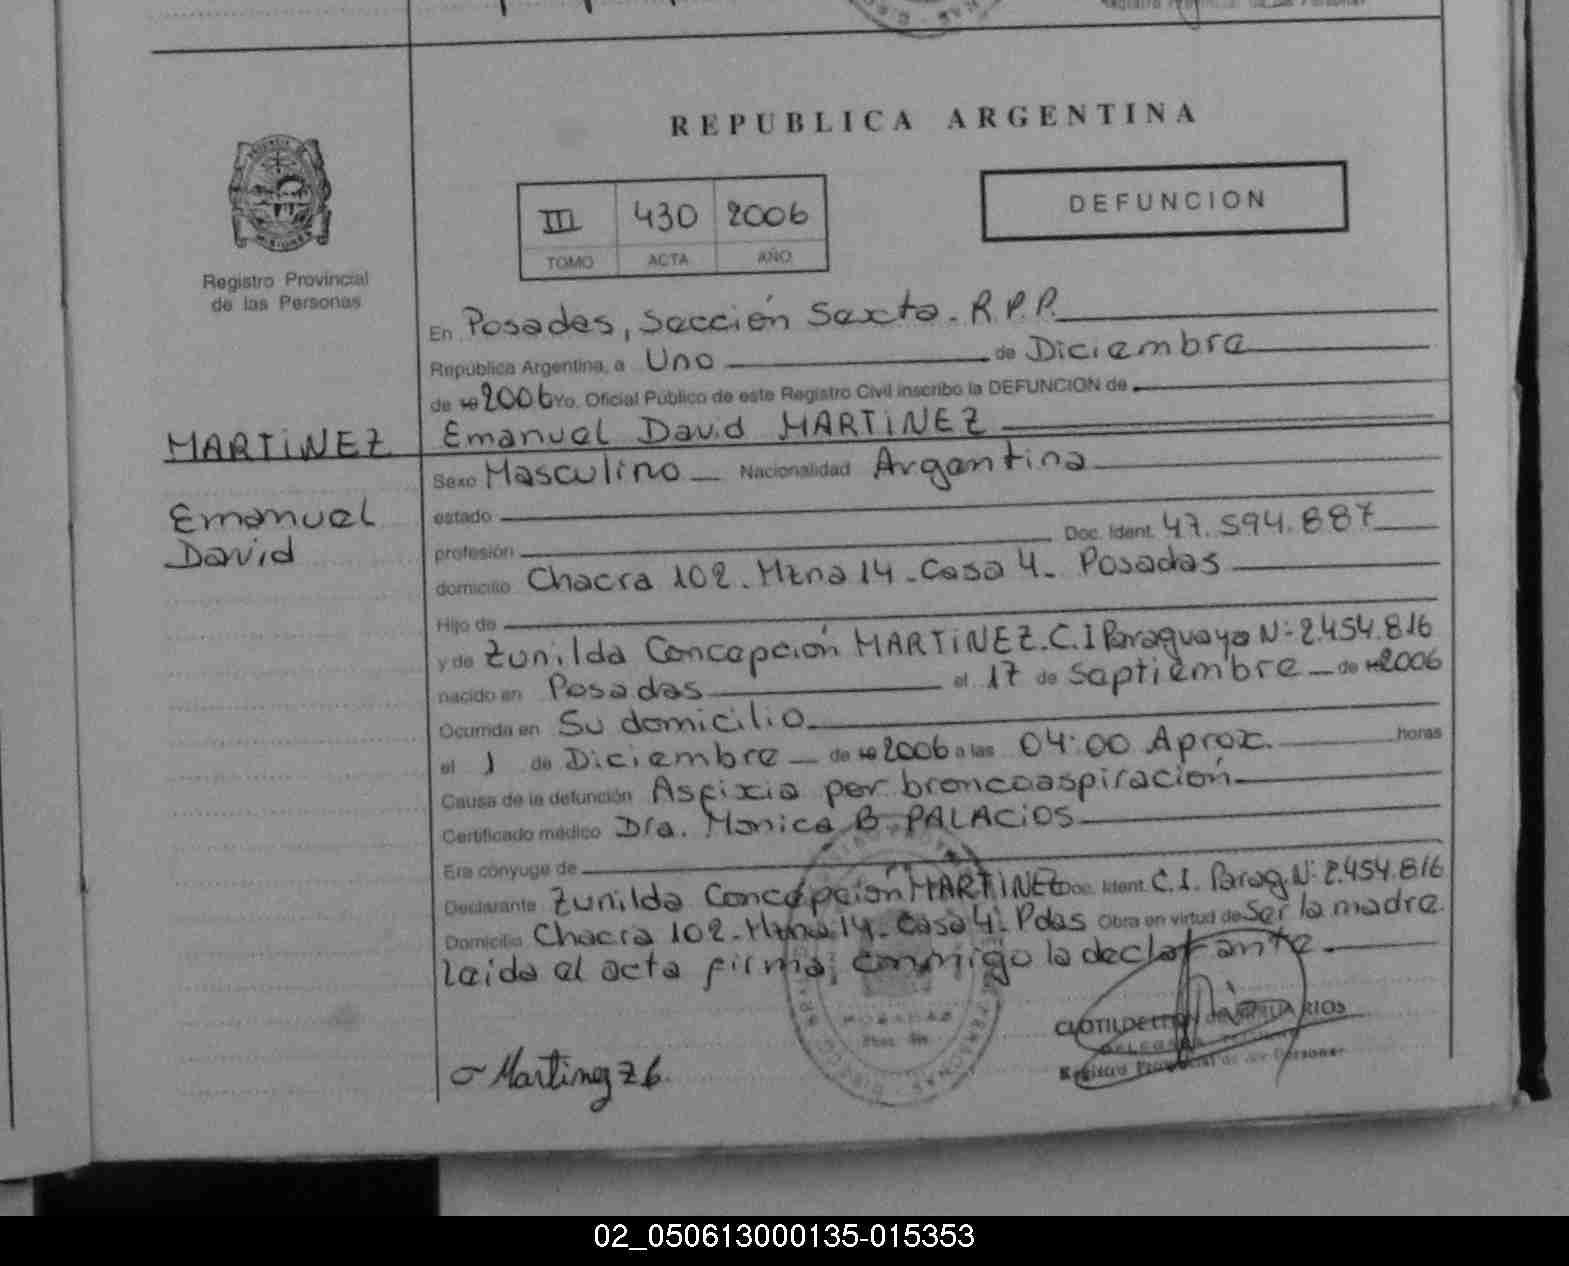 REPUBLICA ARGENTINA
III 430 2006
TOMO ACTA AÑO
DEFUNCION
MISIONES
Registro Provincial
de las Personas
En Posadas, Sección Sexta. R.P.P.
República Argentina, a Uno de Diciembre
de 2006 Yo, Oficial Público de este Registro Civil inscribo la DEFUNCION de
MARTINEZ Emanuel David MARTINEZ
Sexo Masculino Nacionalidad Argentina
Emanuel
David
estado
profesión Doc. Ident. 47.594.887
domicilio Chacra 102. Mzna 14. Casa 4. Posadas
Hijo de
y de Zunilda Concepción MARTINEZ. C.I Paraguaya N: 2.454.816
nacido en Posadas el 17 de Septiembre de 2006
Ocurrida en Su domicilio
el 1 de Diciembre de 2006 a las 04:00 Aprox. horas
Causa de la defunción Asfixia por broncoaspiración
Certificado médico Dra. Monica B. PALACIOS
Era cónyuge de
Declarante Zunilda Concepción MARTINEZ Doc. Ident. C.I. Parag N: 2.454.816
Domicilio Chacra 102. Mzna 14. Casa 4. Pdas Obra en virtud de Ser la madre.
Leida el acta firma; conmigo la declarante
POSADAS
RIOS
Registro Provincial de las Personas
Martinez Z C.
02_050613000135-015353